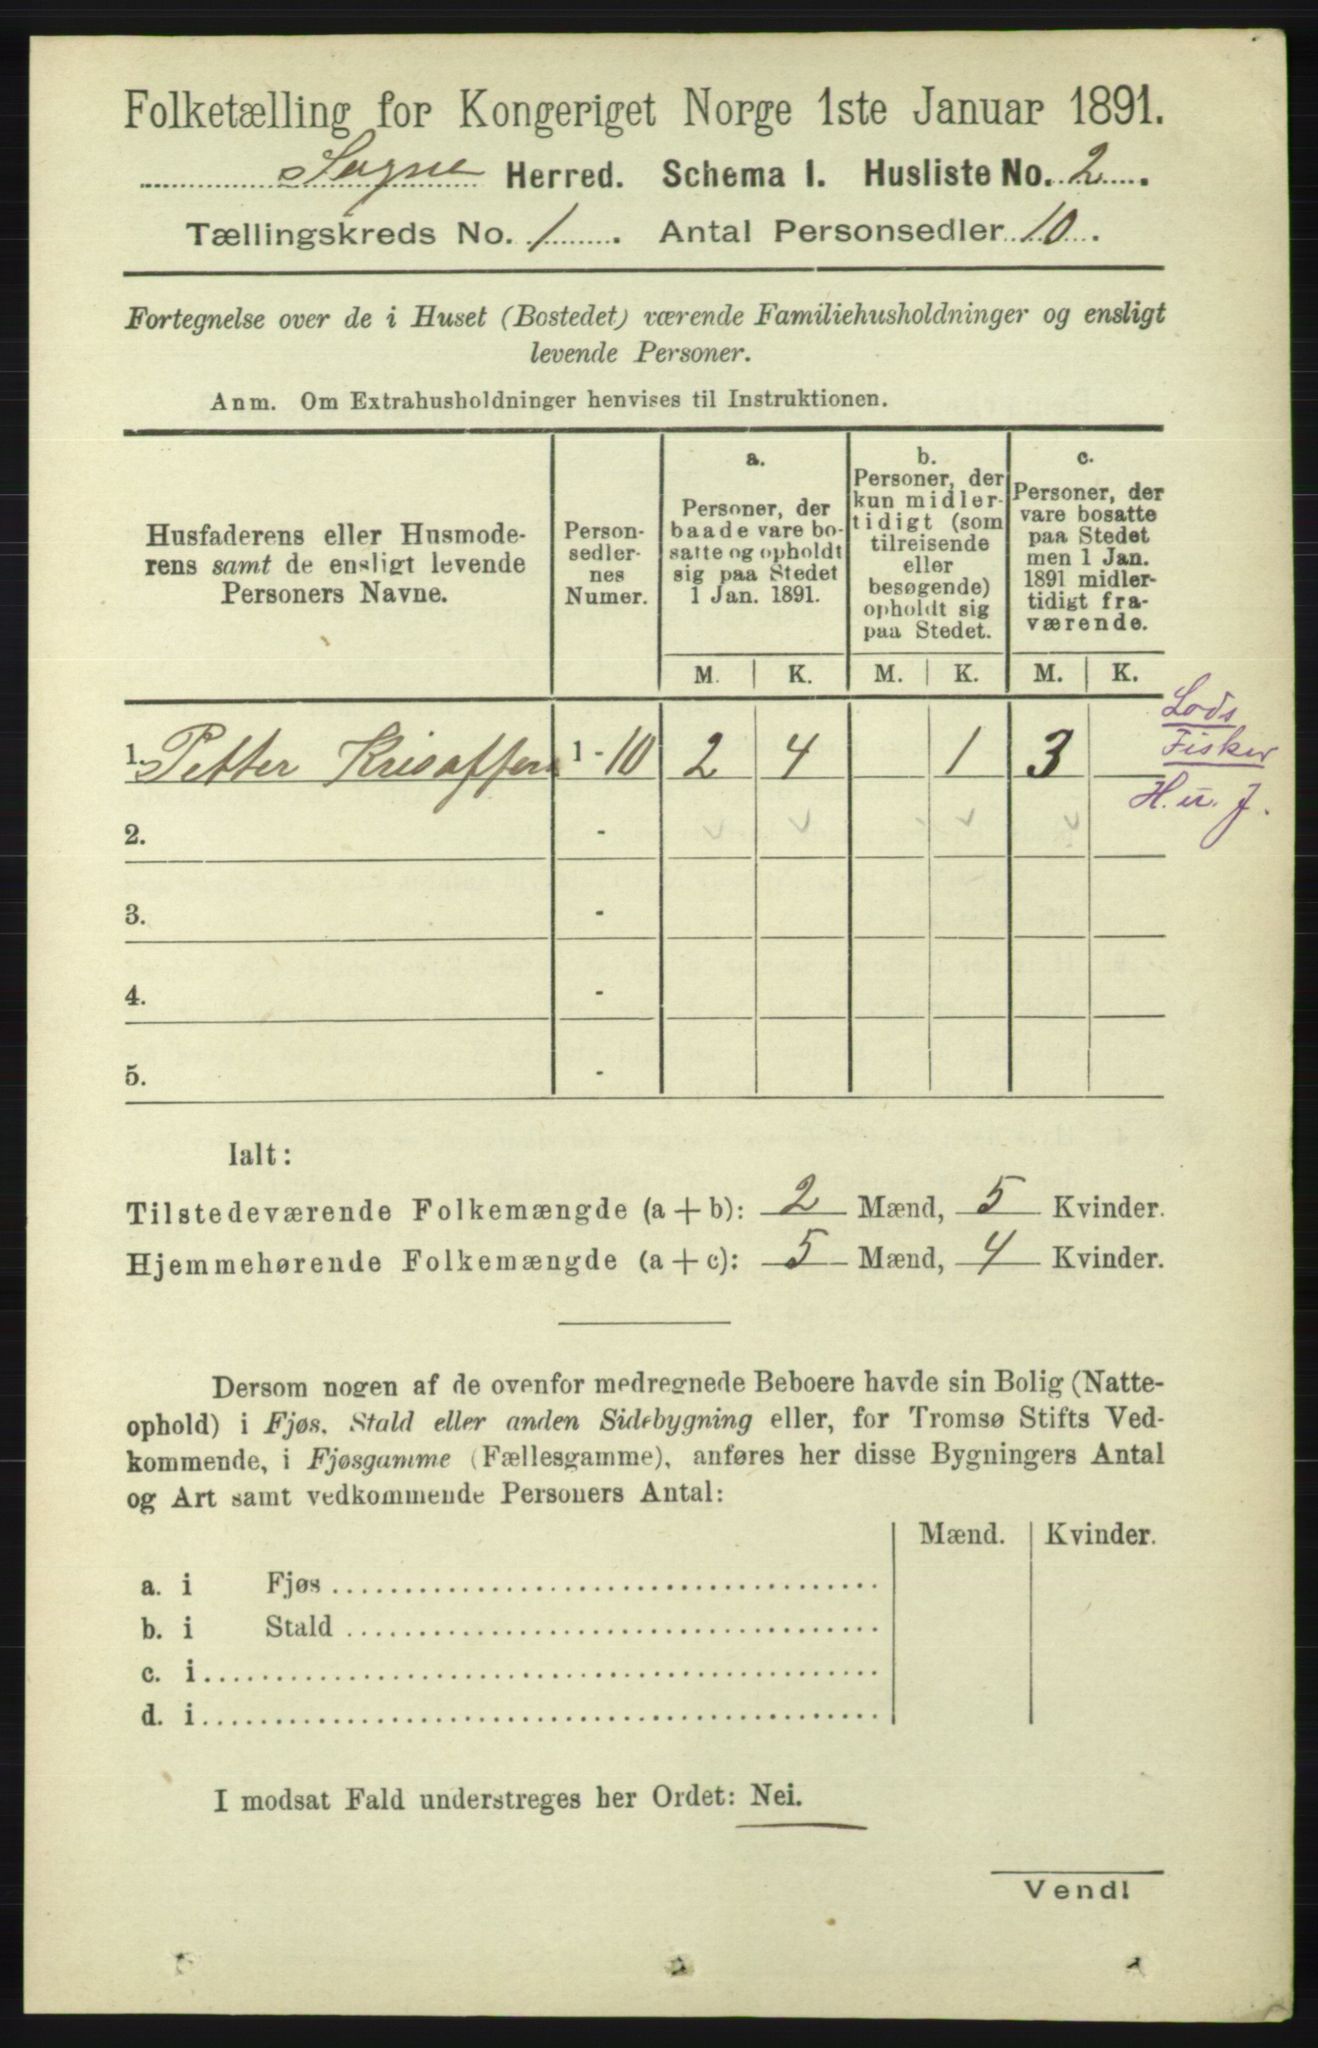 Folketælling for Kongeriget Norge 1ste Januar 1891.
Søgne Herred. Schema I. Husliste No. 2.
Tællingskreds No. 1. Antal Personsedler 10.
Fortegnelse over de i Huset (Bostedet) værende Familiehusholdninger og ensligt
levende Personer.
Anm. Om Extrahusholdninger henvises til Instruktionen.
Husfaderens eller Husmode-
rens samt de ensligt levende
Personers Navne.
Person-
sedler-
nes
Numer.
a.
Personer, der
baade vare bo-
satte og opholdt
sig paa Stedet
1 Jan. 1891.
b.
Personer, der
kun midler-
tidigt (som
tilreisende
eller
besøgende)
opholdt sig
paa Stedet.
c.
Personer, der
vare bosatte
paa Stedet
men 1 Jan.
1891 midler-
tidigt fra-
værende.
M. K. M. K. M. K.
1. Petter 1 - 10 2 4 1 3
Lods
Fisker
H. u. J.
2. -
3. -
4. -
5. -
Ialt:
Tilstedeværende Folkemængde (a + b): 2 Mænd, 5 Kvinder.
Hjemmehørende Folkemængde (a + c): 5 Mænd, 4 Kvinder.
Dersom nogen af de ovenfor medregnede Beboere havde sin Bolig (Natte-
ophold) i Fjøs, Stald eller anden Sidebygning eller, for Tromsø Stifts Ved-
kommende, i Fjøsgamme (Fællesgamme), anføres her disse Bygningers Antal
og Art samt vedkommende Personers Antal:
Mænd. Kvinder.
a. i Fjøs
b. i Stald
c. i
d. i
I modsat Fald understreges her Ordet: Nei.
Vend!